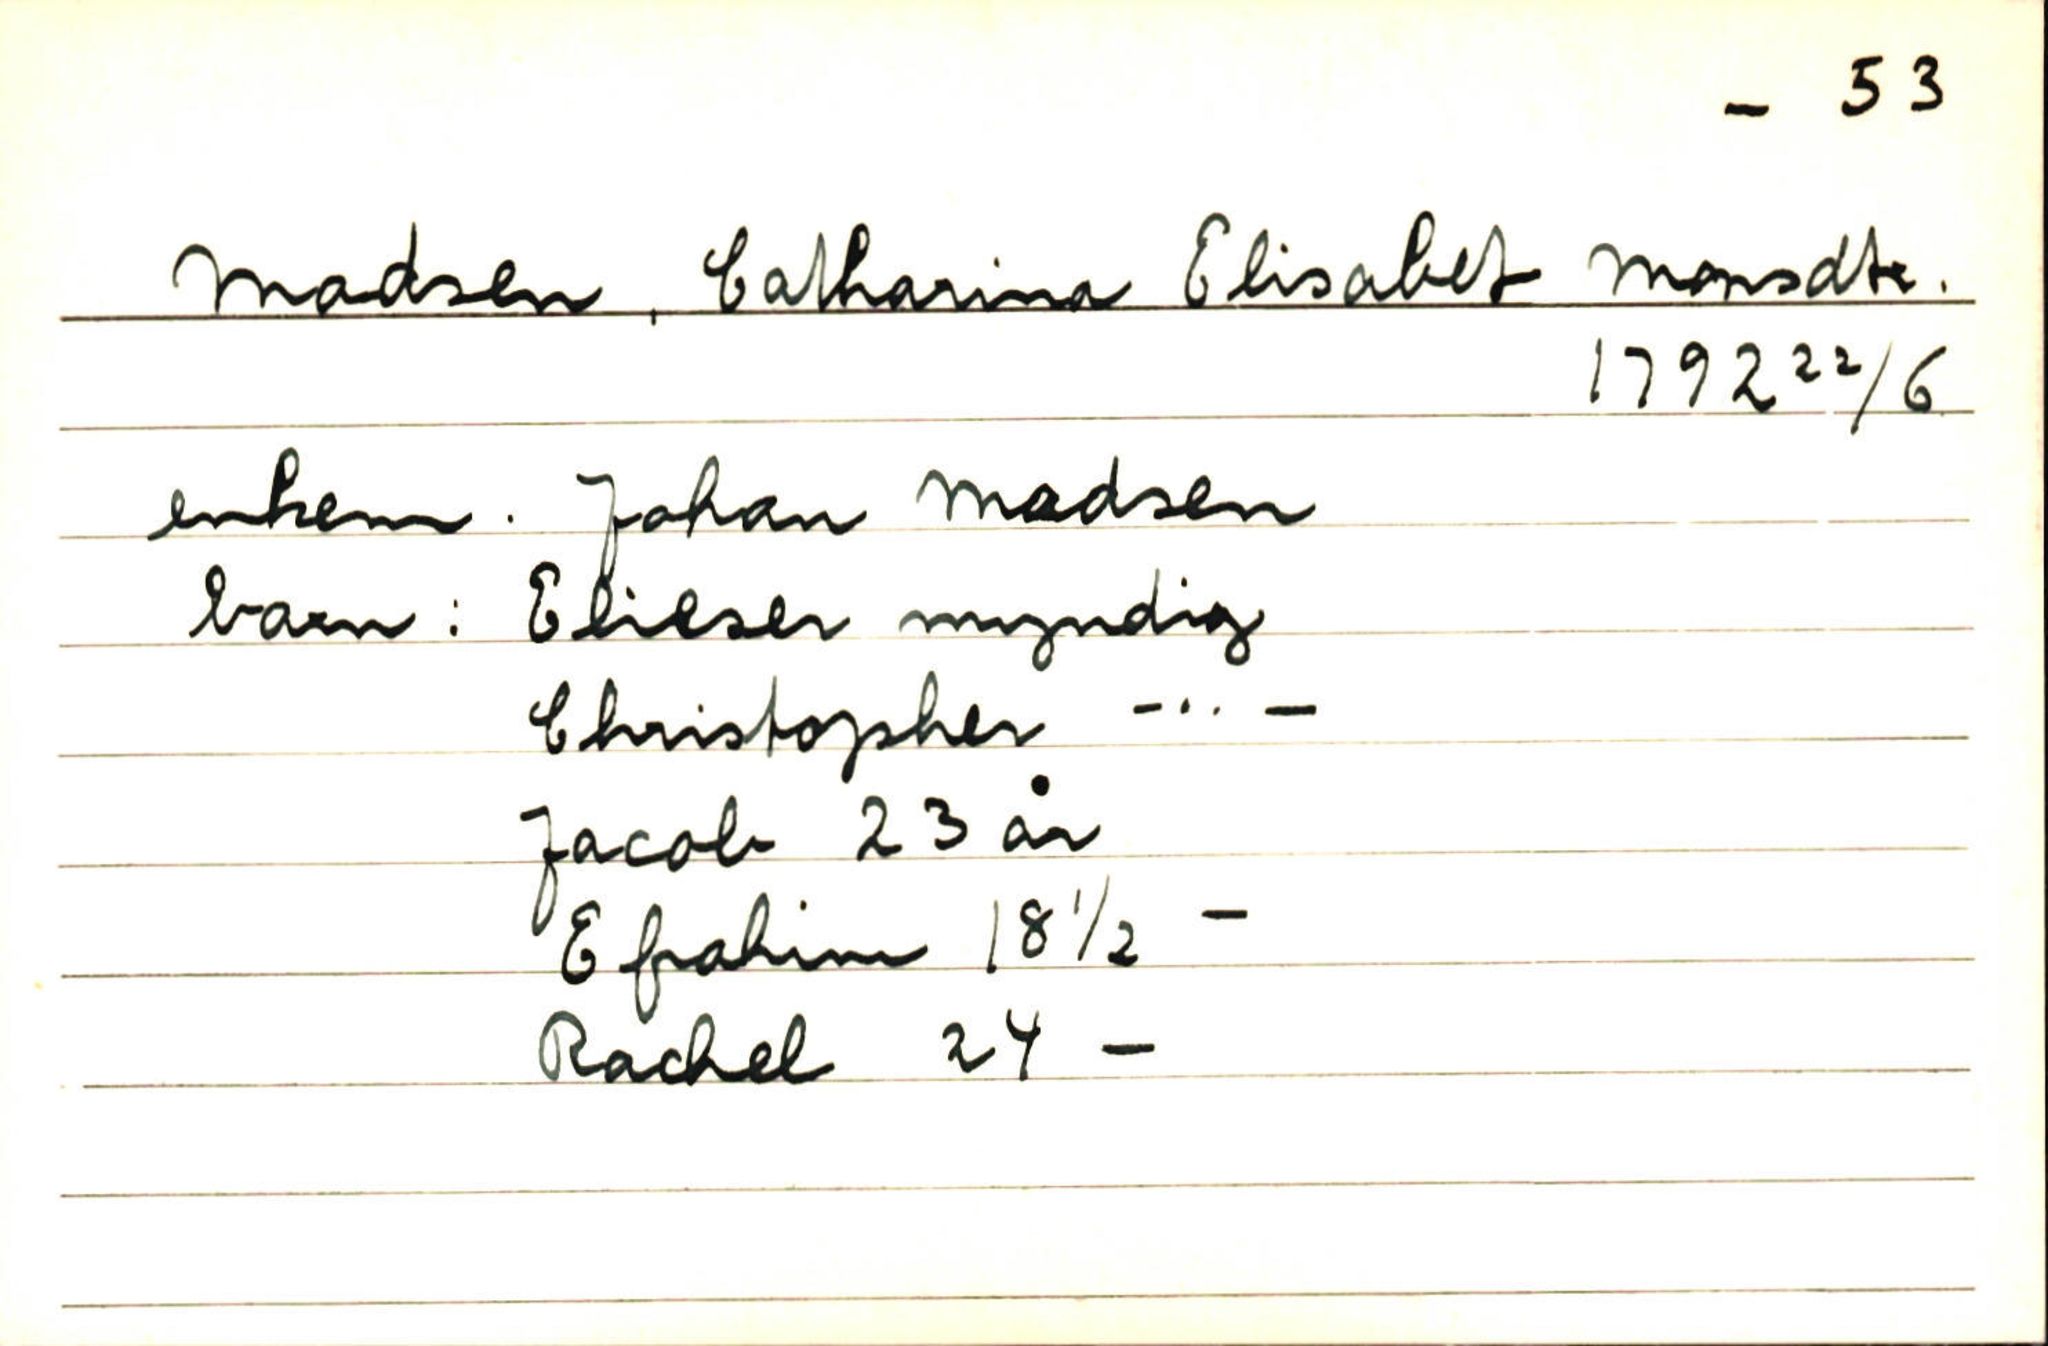 - 53
Madsen, Catharina Elisabet Monsdtr.
1792 22/6
enkem. Johan Madsen
barn: Elieser myndig
Christopher -··-
Jacob 23 år
Efrahim 18 1/2 -
Rachel 24 -